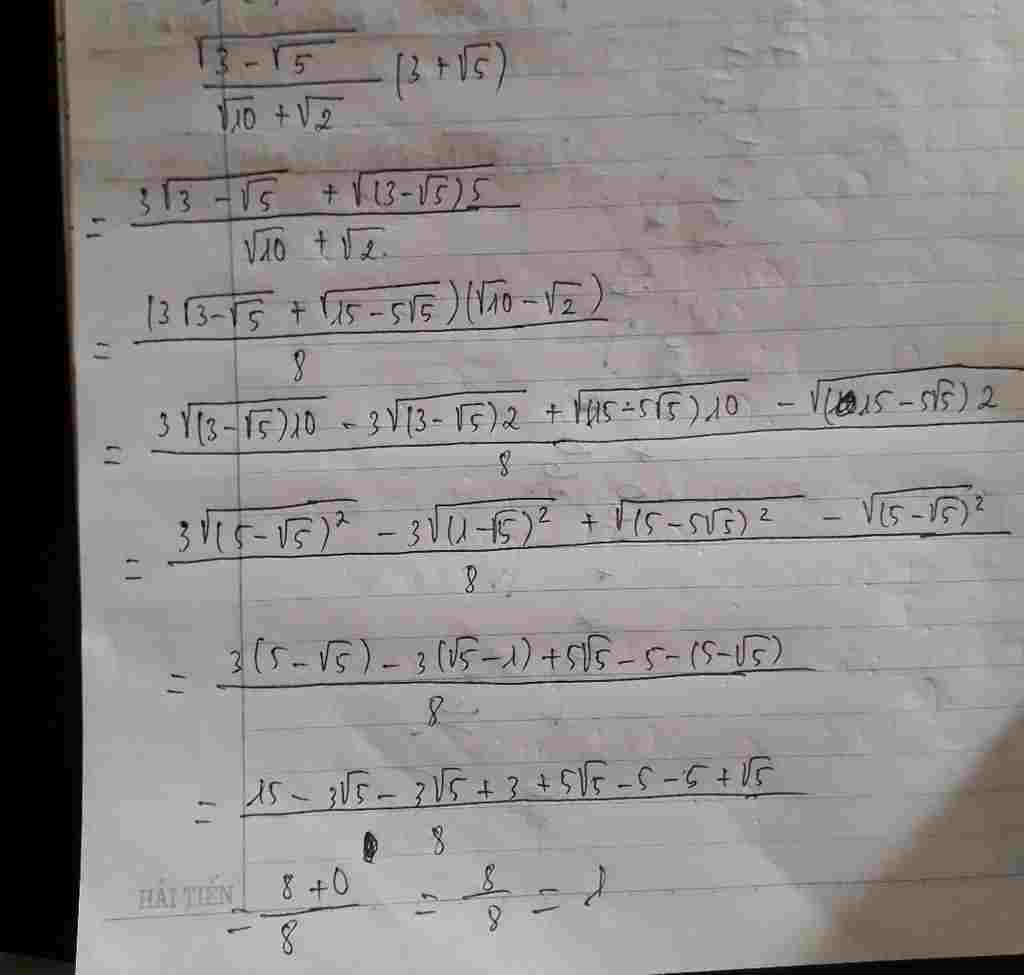 √(3-√5) / (√10 + √2) (3 + √5)
= (3√(3-√5) + √((3-√5)5)) / (√10 + √2)
= ((3√(3-√5) + √(15-5√5))(√10-√2)) / 8
= (3√((3-√5)10) - 3√((3-√5)2) + √((15-5√5)10) - √((15-5√5)2)) / 8
= (3√((5-√5)²) - 3√((1-√5)²) + √((5-5√5)²) - √((5-√5)²)) / 8
= (3(5-√5) - 3(√5-1) + 5√5 - 5 - (5-√5)) / 8
= (15 - 3√5 - 3√5 + 3 + 5√5 - 5 - 5 + √5) / 8
HẢI TIẾN
= (8+0) / 8 = 8/8 = 1